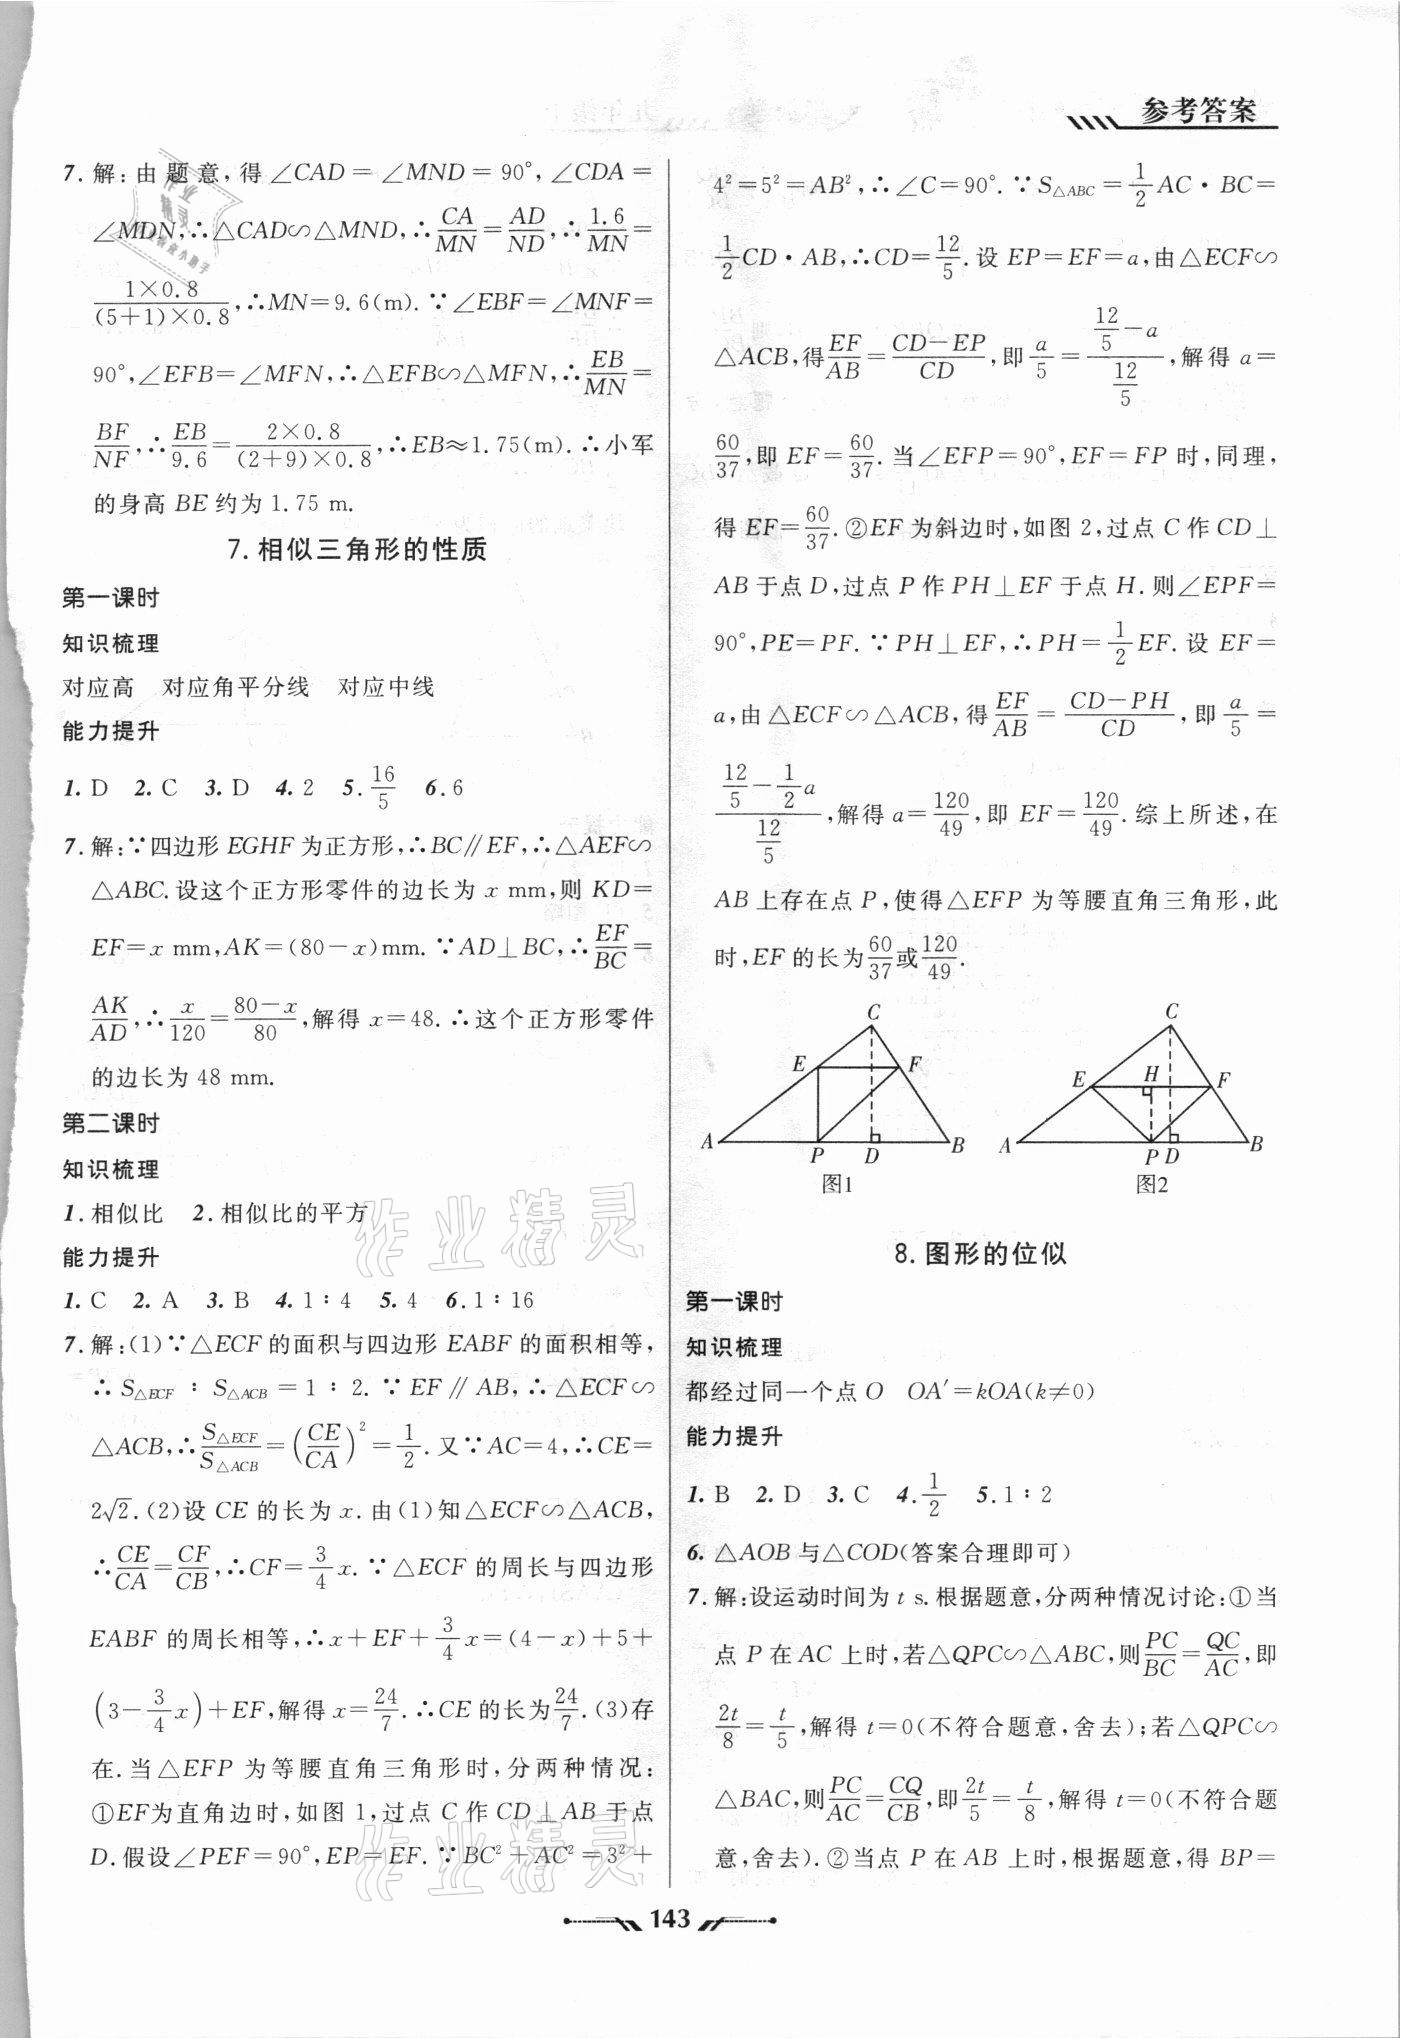 参考答案
7. 解:由题意,得∠CAD=∠MND=90°,∠CDA=
∠MDN,∴△CAD∽△MND,∴CA/MN=AD/ND,∴1.6/MN=
(1×0.8)/((5+1)×0.8),∴MN=9.6(m).∵∠EBF=∠MNF=
90°,∠EFB=∠MFN,∴△EFB∽△MFN,∴EB/MN=
BF/NF,∴EB/9.6=(2×0.8)/((2+9)×0.8),∴EB≈1.75(m).∴小军
的身高BE约为1.75 m.
7.相似三角形的性质
第一课时
知识梳理
对应高 对应角平分线 对应中线
能力提升
1. D 2. C 3. D 4. 2 5. 16/5 6. 6
7. 解:∵四边形EGHF为正方形,∴BC∥EF,∴△AEF∽
△ABC.设这个正方形零件的边长为x mm,则KD=
EF=x mm,AK=(80-x)mm.∵AD⊥BC,∴EF/BC=
AK/AD,∴x/120=(80-x)/80,解得x=48.∴这个正方形零件
的边长为48 mm.
第二课时
知识梳理
1. 相似比 2. 相似比的平方
能力提升
1. C 2. A 3. B 4. 1∶4 5. 4 6. 1∶16
7. 解:(1)∵△ECF的面积与四边形EABF的面积相等,
∴S△ECF∶S△ACB=1∶2.∵EF∥AB,∴△ECF∽
△ACB,∴S△ECF/S△ACB=(CE/CA)²=1/2.又∵AC=4,∴CE=
2√2.(2)设CE的长为x.由(1)知△ECF∽△ACB,
∴CE/CA=CF/CB,∴CF=3/4x.∵△ECF的周长与四边形
EABF的周长相等,∴x+EF+3/4x=(4-x)+5+
(3-3/4x)+EF,解得x=24/7.∴CE的长为24/7.(3)存
在.当△EFP为等腰直角三角形时,分两种情况:
①EF为直角边时,如图1,过点C作CD⊥AB于点
D.假设∠PEF=90°,EP=EF.∵BC²+AC²=3²+
4²=5²=AB²,∴∠C=90°.∵S△ABC=1/2AC·BC=
1/2CD·AB,∴CD=12/5.设EP=EF=a,由△ECF∽
△ACB,得EF/AB=(CD-EP)/CD,即a/5=(12/5-a)/(12/5),解得a=
60/37,即EF=60/37.当∠EFP=90°,EF=FP时,同理,
得EF=60/37.②EF为斜边时,如图2,过点C作CD⊥
AB于点D,过点P作PH⊥EF于点H.则∠EPF=
90°,PE=PF.∵PH⊥EF,∴PH=1/2EF.设EF=
a,由△ECF∽△ACB,得EF/AB=(CD-PH)/CD,即a/5=
(12/5-1/2a)/(12/5),解得a=120/49,即EF=120/49.综上所述,在
AB上存在点P,使得△EFP为等腰直角三角形,此
时,EF的长为60/37或120/49.
C
E
F
A
P
D
B
图1
C
E
H
F
A
P
D
B
图2
8.图形的位似
第一课时
知识梳理
都经过同一个点O OA′=kOA(k≠0)
能力提升
1. B 2. D 3. C 4. 1/2 5. 1∶2
6. △AOB与△COD(答案合理即可)
7. 解:设运动时间为t s.根据题意,分两种情况讨论:①当
点P在AC上时,若△QPC∽△ABC,则PC/BC=QC/AC,即
2t/8=t/5,解得t=0(不符合题意,舍去);若△QPC∽
△BAC,则PC/AC=CQ/CB,即2t/5=t/8,解得t=0(不符合题
意,舍去).②当点P在AB上时,根据题意,得BP=
143
作业精灵
作业精灵